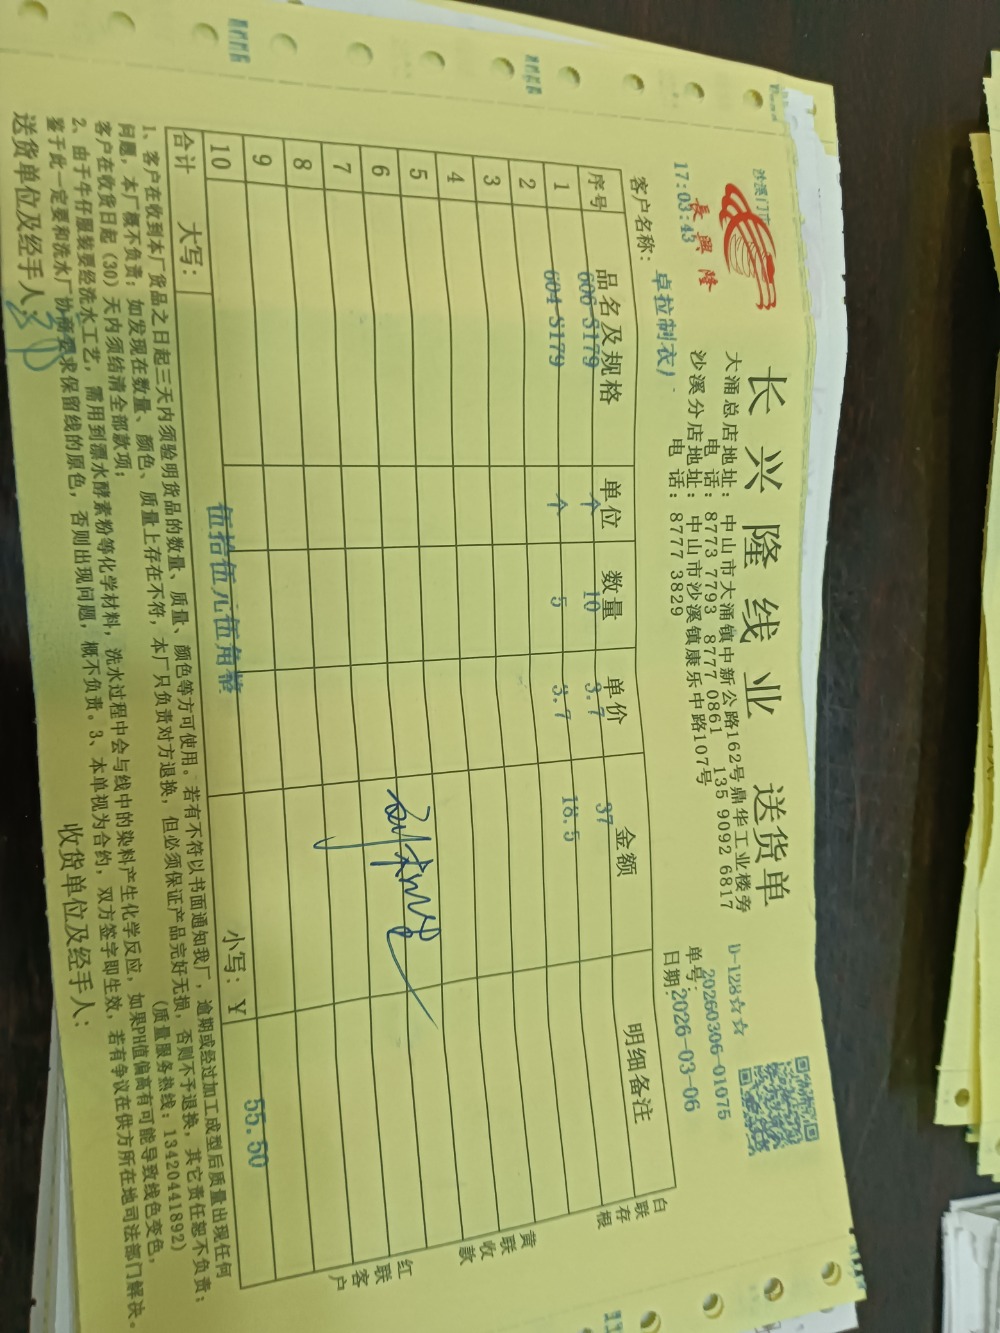 沙溪门市
17:03:43
長興隆
长兴隆线业 送货单
大涌总店地址: 中山市大涌镇中新公路162号鼎华工业楼旁
电 话: 8773 7793 8777 0861 135 9092 6817
沙溪分店地址: 中山市沙溪镇康乐中路107号
电 话: 8777 3829
D-128☆☆
单号: 20260306-01075
日期: 2026-03-06
客户名称: 卓拉制衣)
序号 品名及规格 单位 数量 单价 金额 明细备注
606-S179 个 10 3.7 37
1 604-S179 个 5 3.7 18.5
2
3
4
5
6
7
8
9
10
合计 大写: 伍拾伍元伍角整 小写: ¥ 55.50
白联存根
黄联收款
红联客户
1、客户在收到本厂货品之日起三天内须验明货品的数量、质量、颜色等方可使用。若有不符以书面通知我厂，逾期或经过加工成型后质量出现任何
问题，本厂概不负责；如发现在数量、颜色、质量上存在不符，本厂只负责对方退换，但必须保证产品完好无损，否则不予退换，其它责任恕不负责；
客户在收货日起（30）天内须结清全部款项； （质量服务热线：13420441892）
2、由于牛仔服装要经洗水工艺，需用到漂水酵素粉等化学材料，洗水过程中会与线中的染料产生化学反应，如果PH值偏高有可能导致线色变色，
鉴于此一定要和洗水厂协商要求保留线的原色，否则出现问题，概不负责。3、本单视为合约，双方签字即生效，若有争议在供方所在地司法部门解决。
送货单位及经手人: 收货单位及经手人: